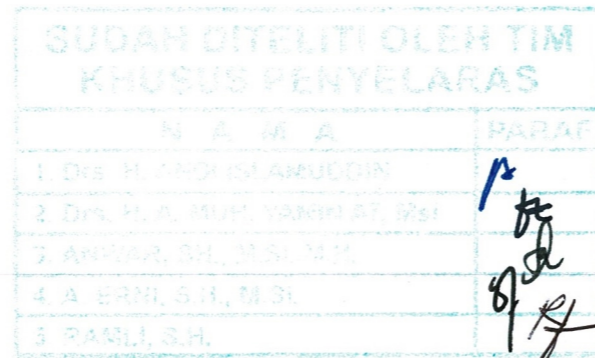 SUDAH DITELITI OLEH TIM
KHUSUS PENYELARAS
N A M A PARAF
1. Drs. H. AMUDDIN
2. Drs. H. A. MUH. YAMIN AT, Msi
3. ANWAR, SH., M.Si, M.H.
4. A. ERNI, S.H., M.Si.
5. RAMLI, S.H.